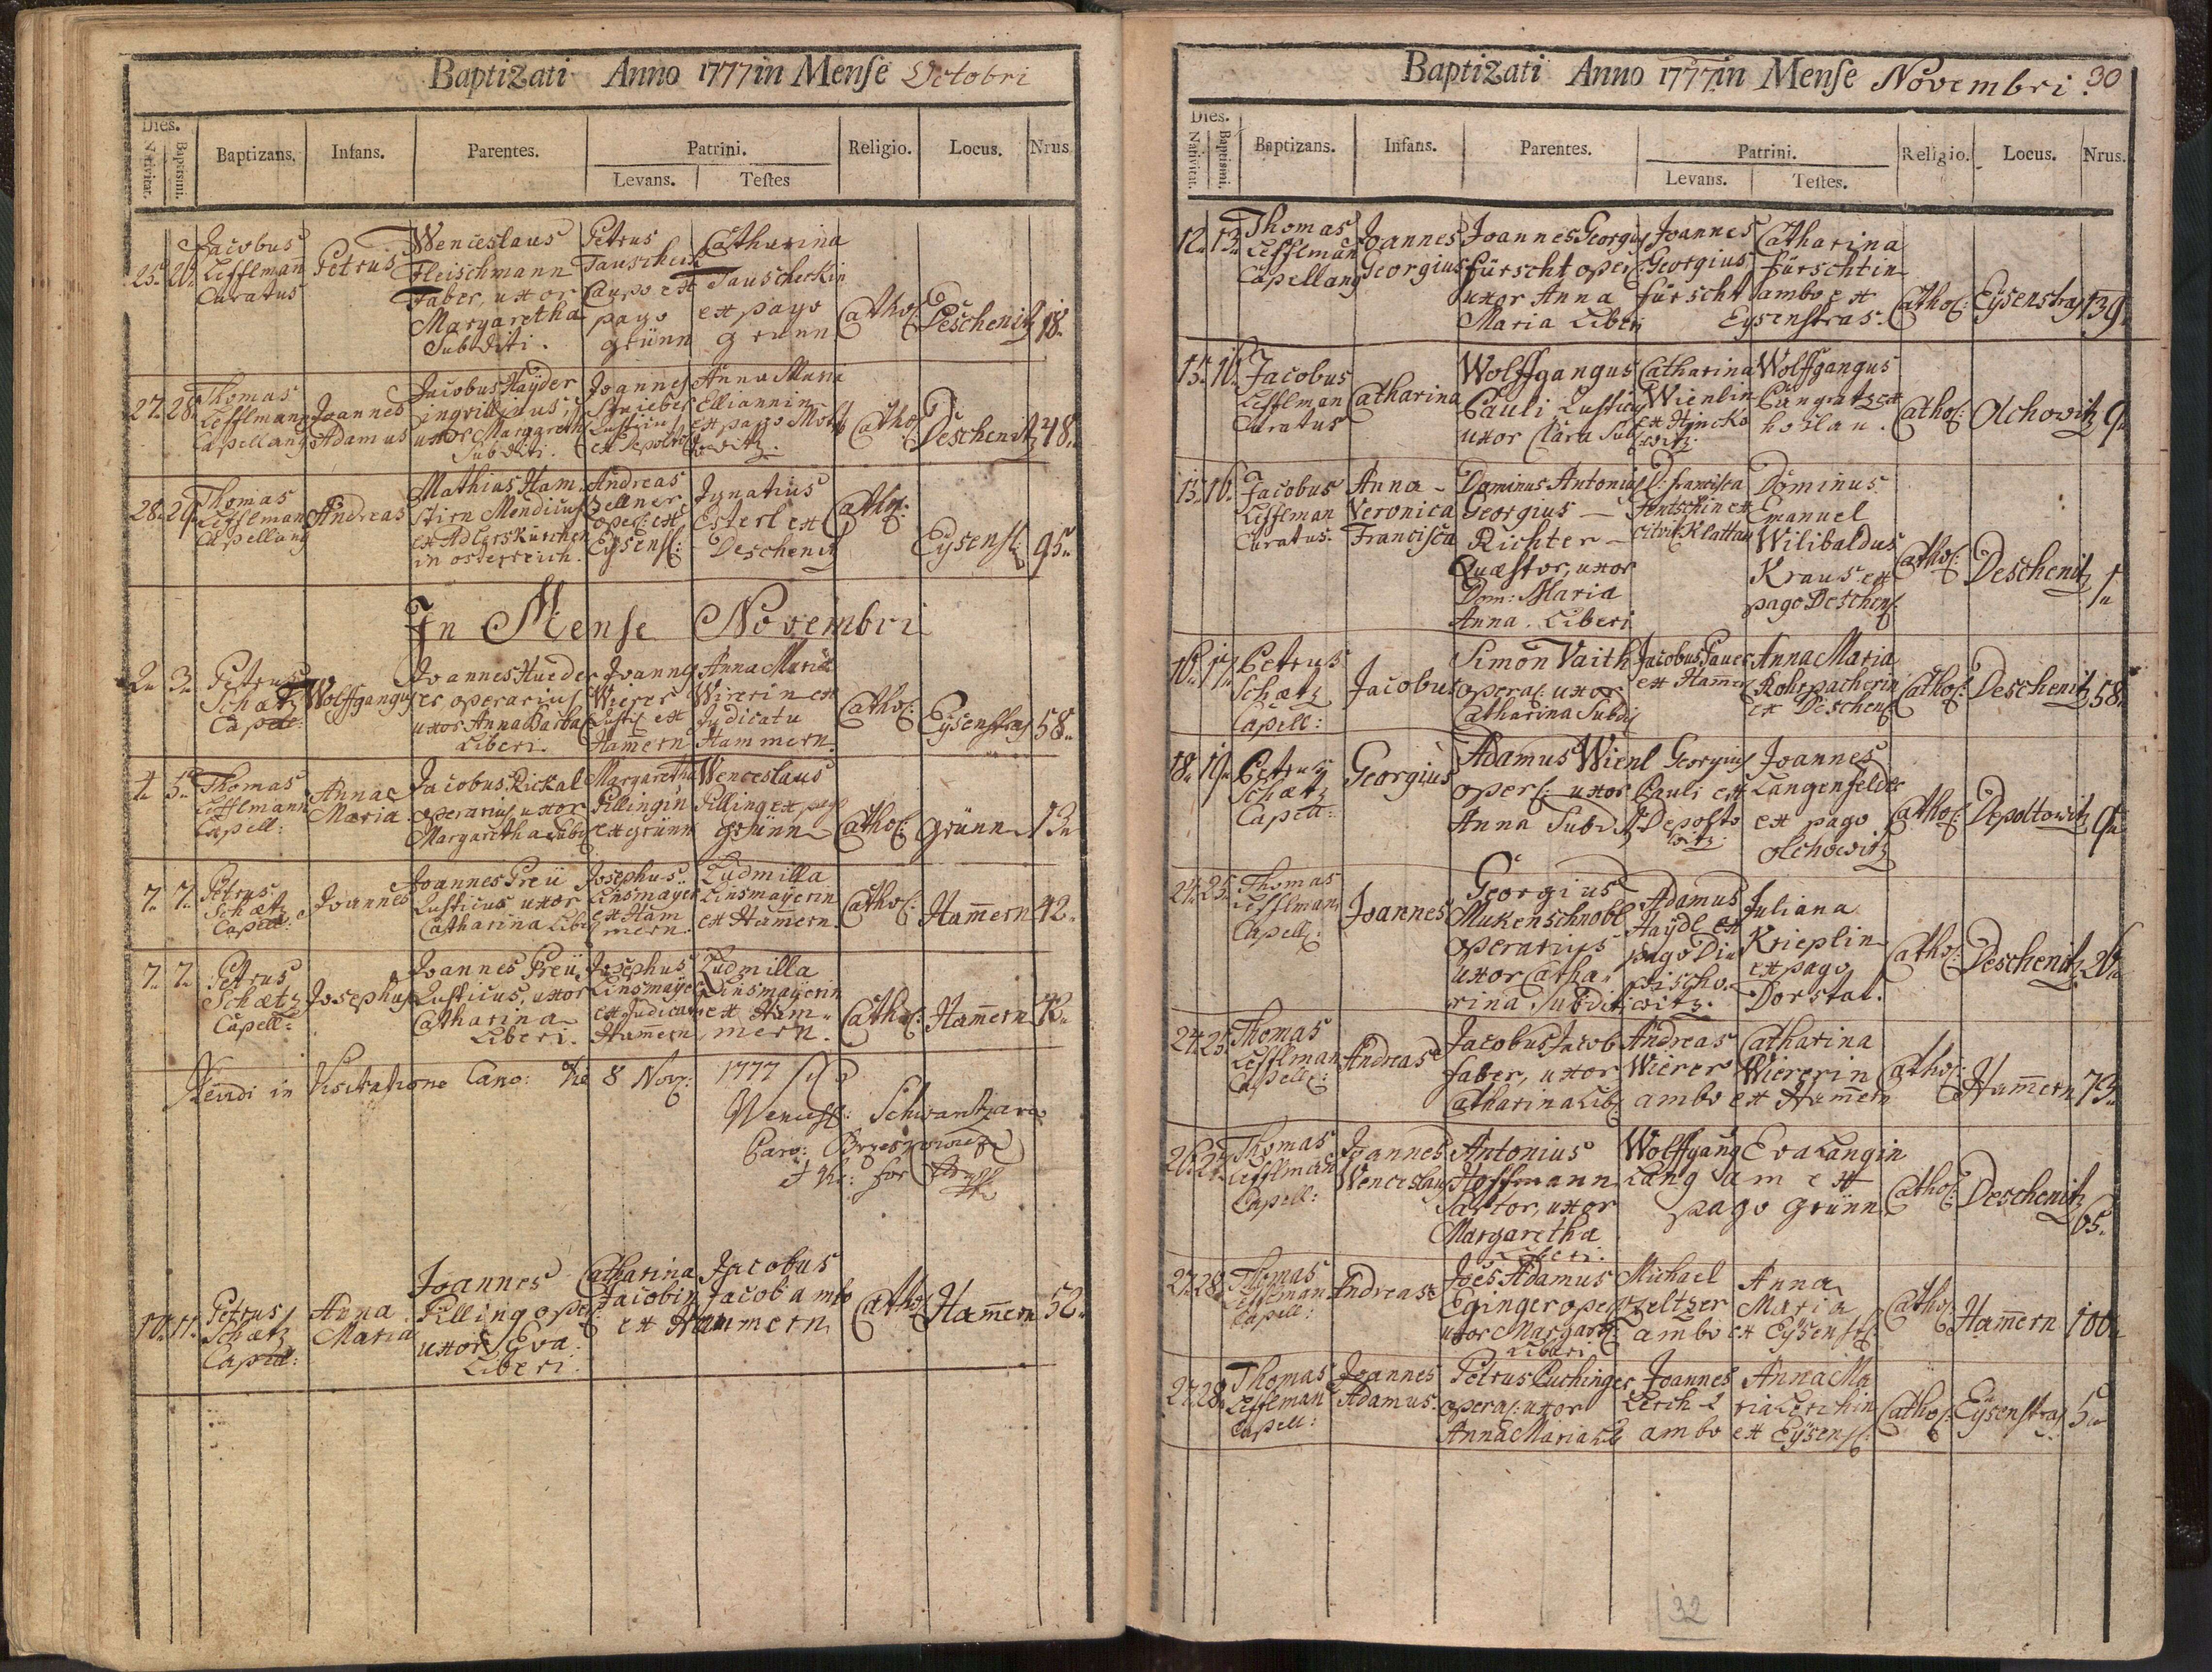 Baptizati Anno 1777 in Mense Octobri
Dies.
Nativitat.
Baptismi.
Baptizans.
Infans.
Parentes.
Patrini.
Levans.
Testes
Religio.
Locus.
Nrus.
25. 26. Jacobus Lefflman Curatus
Petrus
Wenceslaus
Fleischmann
Faber, uxor
Margaretha
Subditi.
Petrus
Caupo ex
pago
grünn
Catharina
Tauscherkin
ex pago
grünn
Cathol:
Deschenitz 18.
27. 28. Thomas
Lefflmann
Capellang
Joannes
Adamus
Jacobus Hayder
uxor Margareth
Subditi.
Joannes
Anna Maria
Elliannin
Cathol:
Deschenitz 48.
28. 29. Thomas
Lefflman
Capellang
Andreas
Mathias Ham
stirn Mendicus
ex Adlerskürchen
in österreich.
Andreas
Zellner
oper: ex
Eysensl:
Ignatius
Esterl ex
Deschenitz
Cathol:
Eysensl: 95.
In Mense Novembri
2. 3. Petrus
Schætz
Capel:
Wolffgangus
Joannes Hueder
er operarius
uxor Anna Barba
Liberi.
Joannes
Wierer
Rustic ex
Hamern
Anna Maria
Wirerin ex
Judicatu
Hammern.
Cathol:
Eysenstras 58.
4. 5. Thomas
Lefflmann
Capell:
Anna
Maria
Jacobus Rickal
operarius uxor
Margaretha Lib
Margaretha
Pillingin
ex grünn
Wenceslaus
Pilling ex pago
grünn
Cathol: grünn 13.
7. 7. Petrus
Schætz
Capell:
Joannes
Joannes Preü
Rusticus uxor
Catharina Lib
Josephus
Linsmayer
ex Ham
mern
Ludmilla
Linsmayerin
ex Hamern.
Cathol: Hamern 42.
7. 7. Petrus
Schætz
Capell:
Josephus
Joannes Preü
Rusticus, uxor
Catharina
Liberi.
Josephus
Linsmayer
ex Judicatu
Hamern
Ludmilla
Linsmayerin
ex Ham
mern.
Cathol: Hamern 42.
in Visitatione Cano: die 8 Nov: 1777
10. 11. Petrus
Schætz
Capell:
Anna
Maria
Joannes
Pilling oper:
uxor Eva
Liberi.
Catharina
Jacobin
Jacobus
Jacob ambo
ex Hammern
Cathol: Hamern 52.
Baptizati Anno 1777 in Mense Novembri 30
Dies.
Nativitat.
Baptismi.
Baptizans.
Infans.
Parentes.
Patrini.
Levans.
Testes.
Religio.
Locus.
Nrus.
12. 13. Thomas
Lefflman
Capellang
Joannes
Georgius
Joannes Georgius
fürscht oper:
uxor Anna
Maria Liberi
Joannes
Georgius
fürscht
Catharina
fürschtin
ambo ex
Eysenstras.
Cathol: Eysenstras 139.
15. 16. Jacobus
Lefflman
Curatus
Catharina
Wolffgangus
Pauli Rusticus
uxor Clara Sub
Catharina
Wienlin
Wolffgangus
Pangratz ex
Cathol: Olchowitz 9.
15. 16. Jacobus
Lefflman
Curatus.
Anna
Veronica
Francisca
Dominus Antonius
Georgius
Richter
Quæstor, uxor
Dom: Maria
Anna. Liberi
D. francisca
Klattau
Dominus
Emanuel
Wilibaldus
Kraus ex
pago Deschen:
Cathol: Deschenitz 1.
16. 17. Petrus
Schætz
Capell:
Jacobus
Simon Vaith
operar: uxor
Catharina Subdi
Jacobus
ex Hamer
Anna Maria
Rohrpacherin
ex Deschen:
Cathol: Deschenitz 58.
18. 19. Petrus
Schætz
Capell:
Georgius
Adamus Wienl
oper: uxor
Anna Subd
Georgius
Pauli ex
Depolto
witz
Joannes
Langenfelder
ex pago
Olchowitz
Cathol: Depoltowitz 9.
24. 25. Thomas
Lefflman
Capell:
Joannes
Georgius
Mukenschnobl
operarius
uxor Catha
rina Subditi
Adamus
Haydl ex
pago
Juliana
Krieplin
ex pago
Dorstat.
Cathol: Deschenitz 26.
24. 25. Thomas
Lefflman
Capell:
Andreas
Jacobus Jacob
faber, uxor
Catharina Lib
Andreas
Wierer
Catharina
Wiererin
ambo ex Hamern
Cathol: Hamern 73.
26. 27. Thomas
Lefflman
Capell:
Joannes
Wenceslaus
Antonius
Hoffmann
Sartor, uxor
Margaretha
Liberi.
Wolffgang
Lang
Eva Langin
am ex
pago grünn
Cathol: Deschenitz
65.
27. 28. Thomas
Lefflman
Capell:
Andreas
Joes Adamus
Eginger oper
uxor Margare
Liberi
Michael
Zeltzer
Anna
Maria
ambo ex Eysenst:
Cathol: Hamern 100.
27. 28. Thomas
Lefflman
Capell:
Joannes
Adamus.
Petrus Puchinger
operar: uxor
Anna Maria Lib
Joannes
Lerch
Anna Ma
ria Lerchin
ambo ex Eysensl:
Cathol: Eysenstras 5.
32